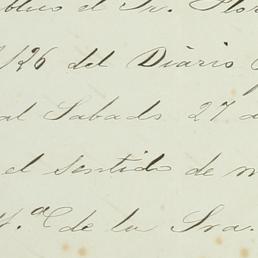 el Sr. Flor
126 del Diario
al Sabado 27 d
el sentido de m
de la Sra.